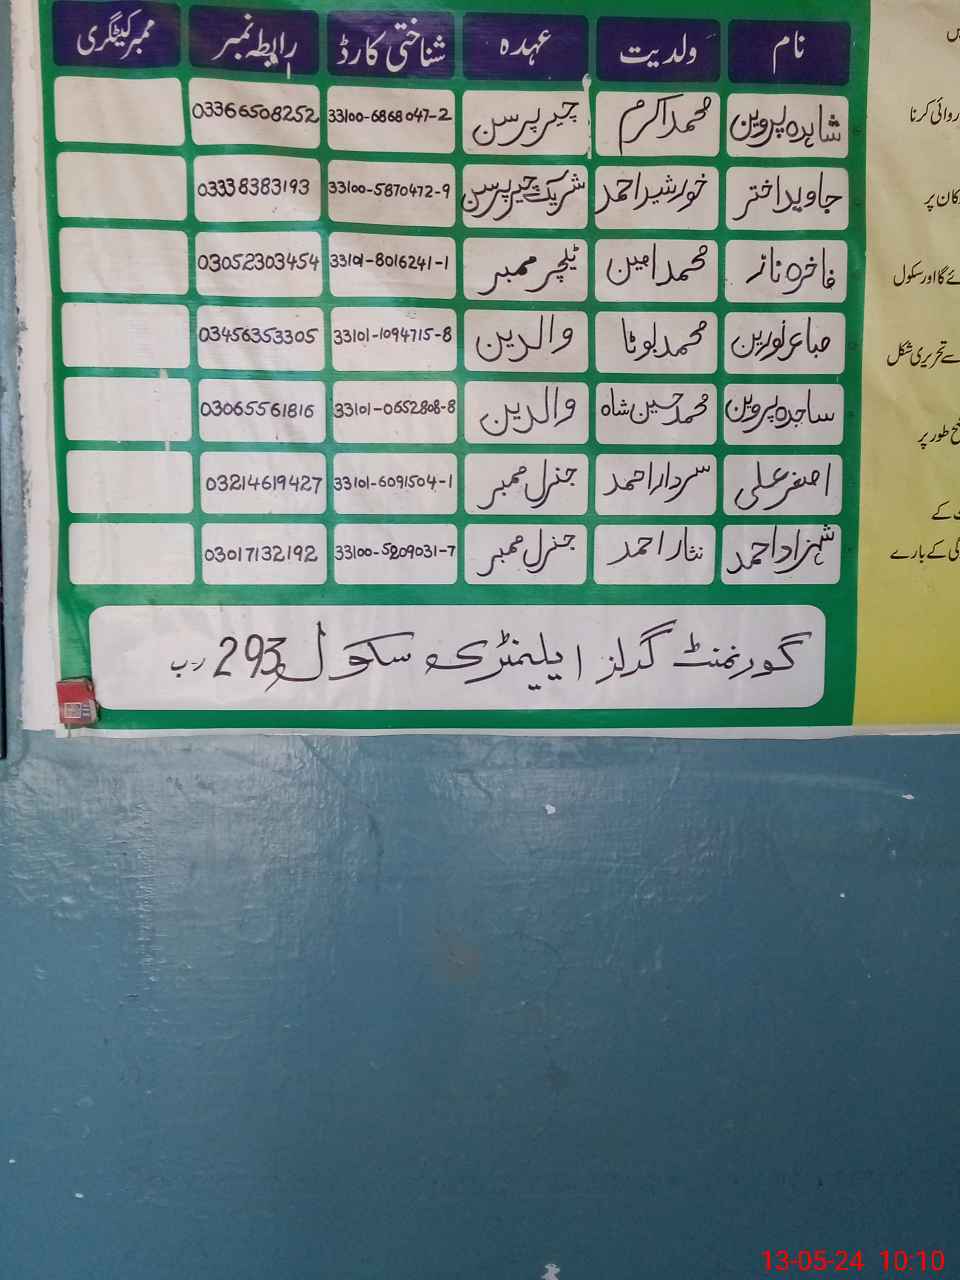 نام ولدیت عہدہ شناختی کارڈ رابطہ نمبر ممبر کیٹگری
شاہدہ پروین محمد اکرم چیرپرسن 33100-6868047-2 03366508252
جاوید اختر خورشید احمد شریک چیرپرسن 33100-5870472-9 03338383193
فاخرہ ناز محمد امین ٹیچر ممبر 33101-8016241-1 03052303454
صباء نورین محمد بوٹا والدین 33101-1094715-8 03456353305
ساجدہ پروین محمد حسین شاہ والدین 33101-0652808-8 03065561816
اصغر علی سردار احمد جنرل ممبر 33101-6091504-1 03214619427
شہزاد احمد نثار احمد جنرل ممبر 33100-5209031-7 03017132192
گورنمنٹ گرلز ایلیمنٹری سکول 293 ر ب
روائی کرنا
کان پر
ئے گا اور سکول
سے تحریری شکل
طور پر
کے
گی کے بارے
13-05-24 10:10